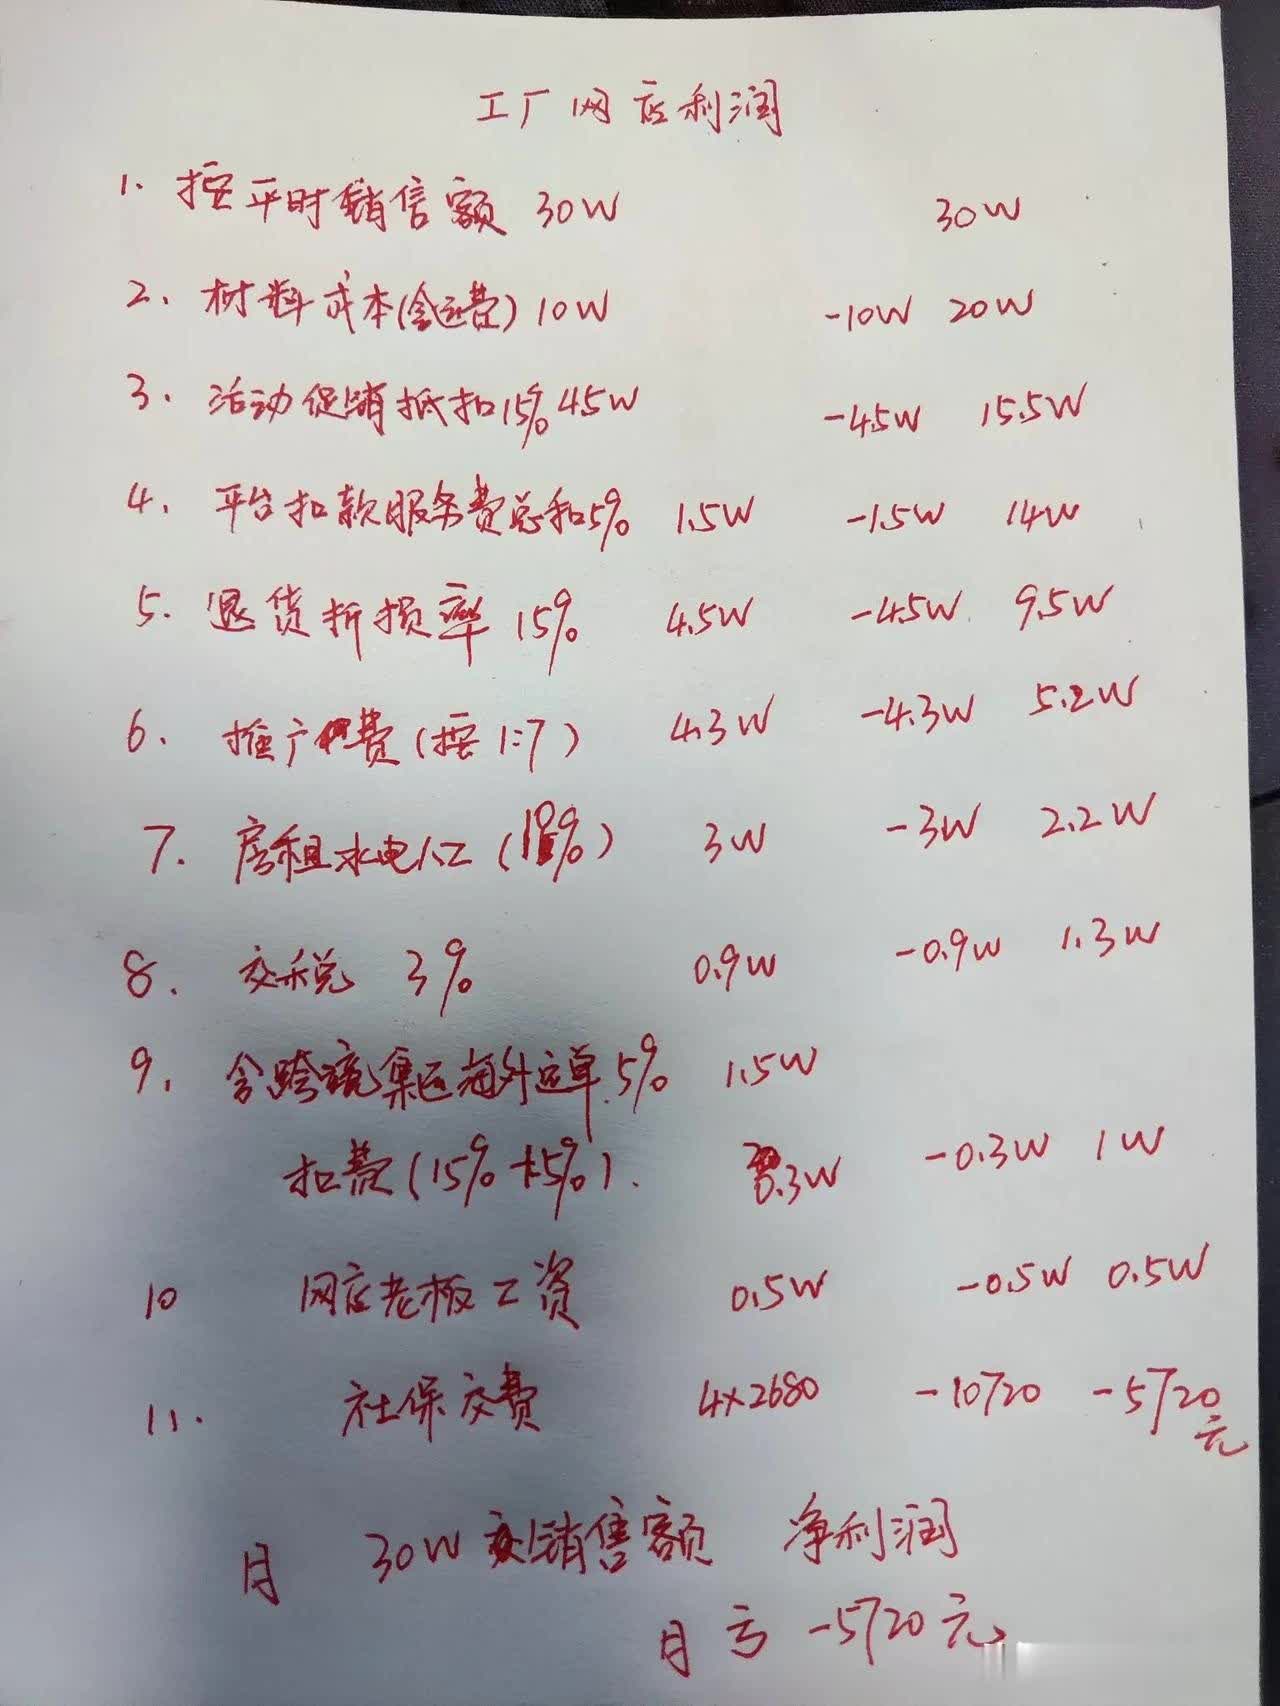 工厂网店利润
1. 按平时销售额 30W 30W
2. 材料成本(含运费) 10W -10W 20W
3. 活动促销抵扣15% 4.5W -4.5W 15.5W
4. 平台扣款服务费总和5% 1.5W -1.5W 14W
5. 退货折损率 15% 4.5W -4.5W 9.5W
6. 推广费(按1:7) 4.3W -4.3W 5.2W
7. 房租水电人工(10%) 3W -3W 2.2W
8. 交税 3% 0.9W -0.9W 1.3W
9. 含跨境集运海外运单5% 1.5W
扣费(15%+5%). 0.3W -0.3W 1W
10 网店老板工资 0.5W -0.5W 0.5W
11. 社保交费 4×2680 -10720 -5720元
月 30W 销售额 净利润
月亏 -5720元